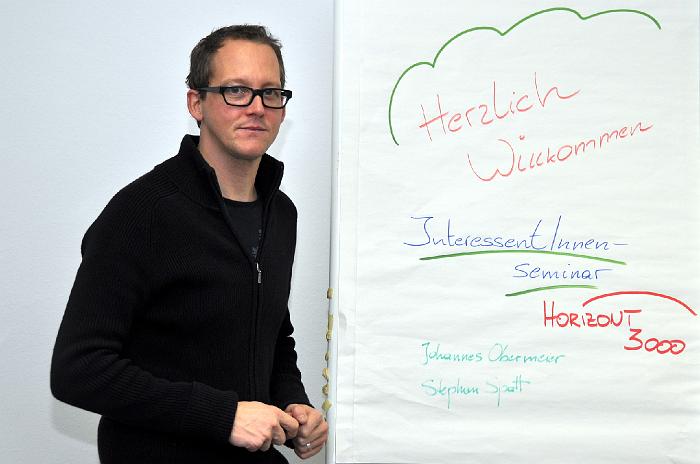 Herzlich
Willkommen
InteressentInnen-
seminar
HORIZONT
3000
Johannes Obermeier
Stephan Spatt